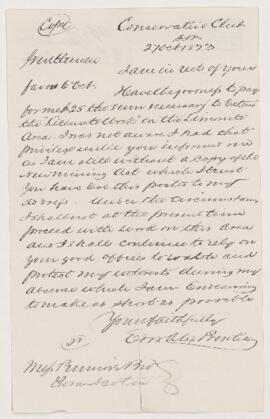 Copy
Conservative Club
S.W.
27 Oct 1873
Gentlemen
I am in rect of your
favor 6 Oct.
Have the goodness to pay
for me £25 the sum necessary to
the on the Limonite
Area. I was not aware I had that
privilege until you informed me
as I am still without a copy of the
New Mining Act which I trust
you have ere this posted to my
address. Under the circumstances
I shall not at the present time
proceed with work on this Area
and I shall continue to rely on
your good offices to watch and
protect my interests during my
absence which I am endeavoring
to make as short as possible
Yours faithfully
Messrs Bros